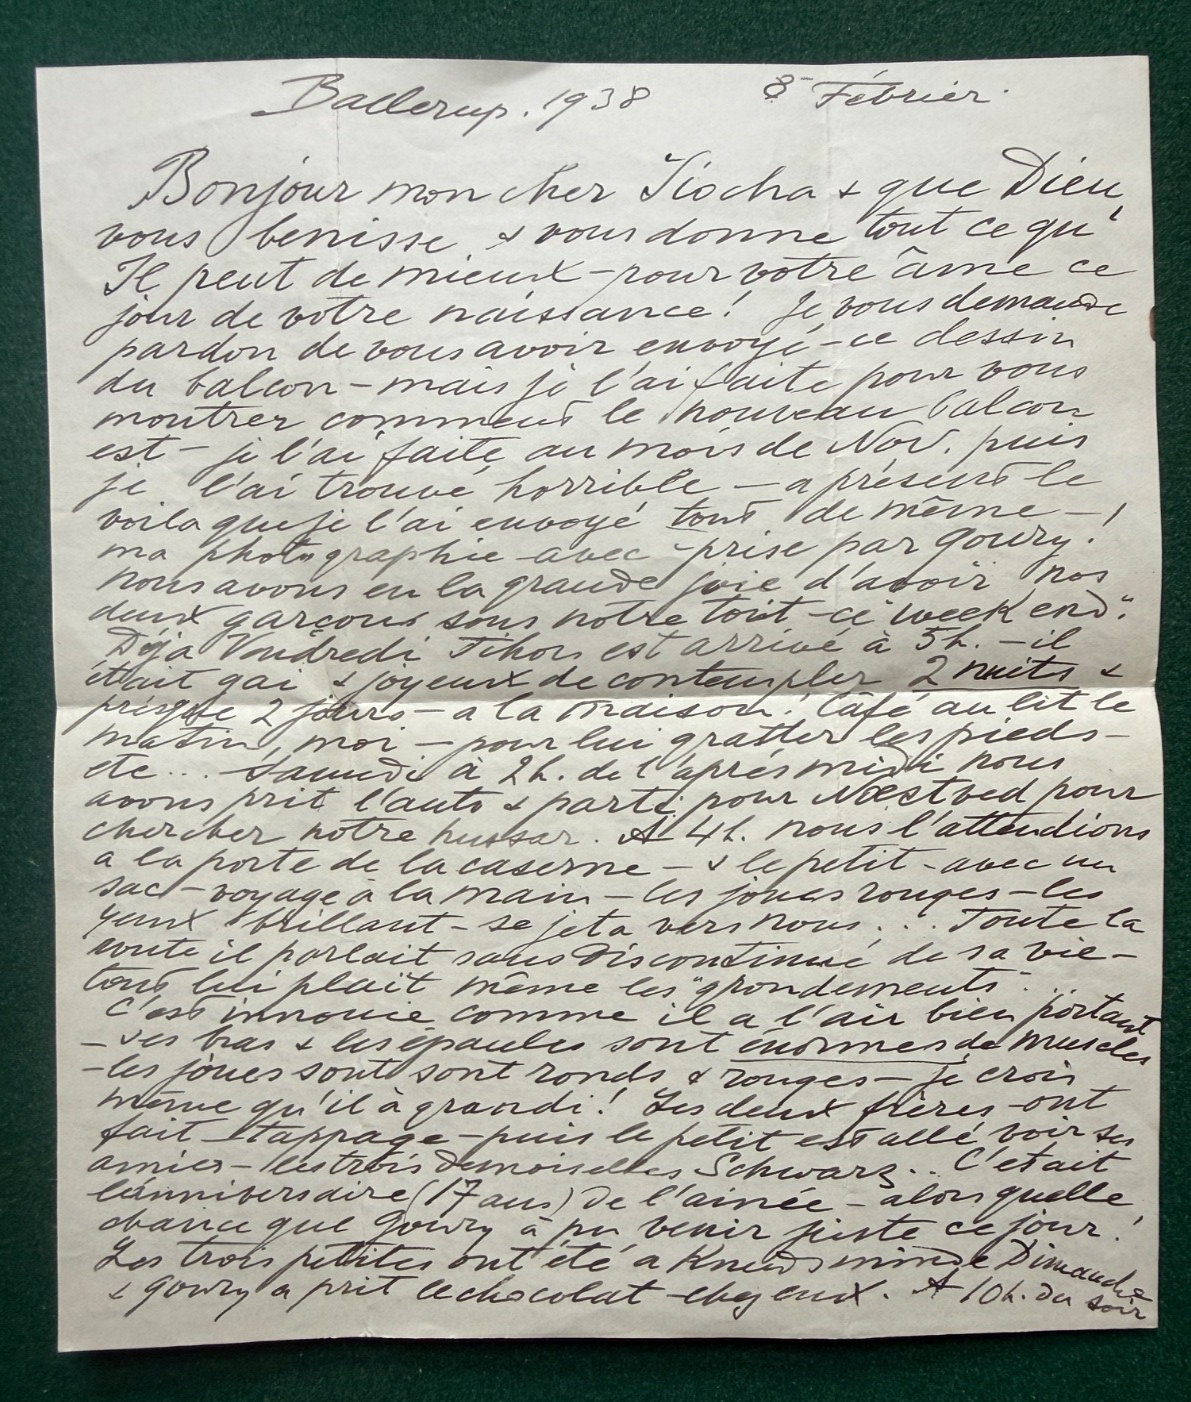 Ballerup. 1938 8 Février.
Bonjour mon cher Siocha & que Dieu
vous benisse & vous donne tout ce qu'
Il peut de mieux - pour votre âme ce
jour de votre naissance! Je vous demande
pardon de vous avoir envoyé - ce dessin
du balcon - mais je l'ai faite pour vous
montrer comment le nouveau balcon
est - je l'ai faite au mois de Nov. puis
je l'ai trouvé horrible - a présent le
voila que je l'ai envoyé tout de même - !
ma photographie - avec - prise par Goury.
nous avons eu la grande joie d'avoir nos
deux garçons sous notre toit - ce "week end".
Déja Vendredi Tihon est arrivé à 5h. - il
était gai & joyeux de contempler 2 nuits &
presque 2 jours - a la maison! Café au lit le
matin, moi - pour lui gratter les pieds -
etc... Samedi à 2h. de l'aprés midi nous
avons prit l'auto & parti pour Næstved pour
chercher notre hussar. A 4h. nous l'attendions
a la porte de la caserne - & le petit - avec un
sac - voyage à la main - les joues rouges - les
yeux brillant - se jeta vers nous... Toute la
route il parlait sans discontinué de sa vie -
tout lui plait même les "grondements"...
C'est innouie comme il a l'air bien portant
- ses bras & les épaules sont énormes de muscles
- les joues sont sont ronds & rouges - je crois
même qu'il à grandi! Les deux frères - ont
fait - tappage - puis le petit est allé voir ses
amies - les trois demoiselles Schwarz.. C'était
l'anniversaire (17 ans) de l'ainée - alors quelle
chance que Goury à pu venir juste ce jour!
Les trois petites ont été a Knudsminde Dimanche
& Goury a prit le chocolat - chez eux. A 10h. du soir